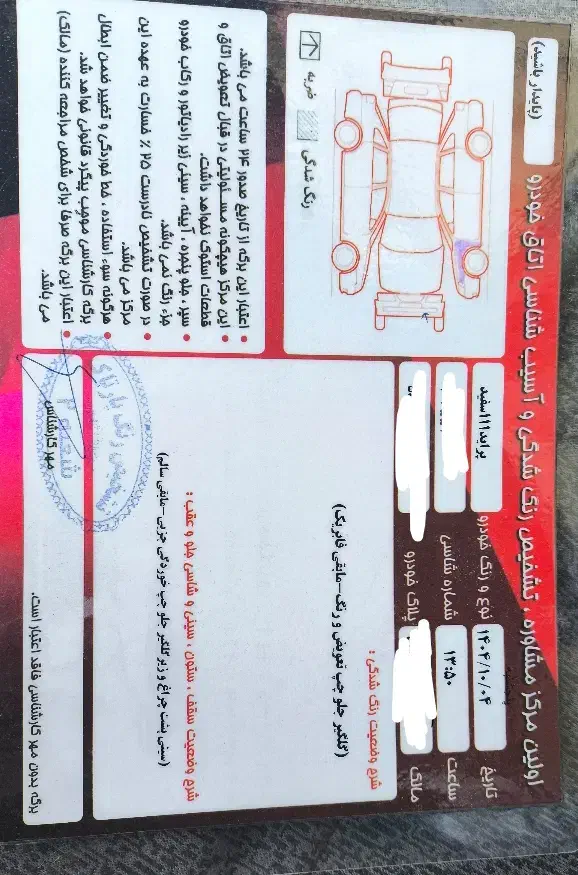 اولین مرکز مشاوره، تشخیص رنگ شدگی و آسیب شناسی اتاق خودرو
(پایدار باشید)
تاریخ ۱۴۰۴/۱۰/۰۴
نوع و رنگ خودرو پراید۱۱۱سفید
ساعت ۱۳:۵۰
شماره شاسی
مالک
پلاک خودرو
ضربه
رنگ شدگی
شرح وضعیت رنگ شدگی :
(گلگیر جلو چپ تعویض و رنگ-مابقی فابریک)
شرح وضعیت سقف ، ستون ، سینی و شاسی جلو و عقب :
(سینی پشت چراغ و زیر گلگیر جلو چپ خوردگی جزیی -مابقی سالم)
• اعتبار این برگه از تاریخ صدور ۲۴ ساعت می باشد.
• این مرکز هیچگونه مسئولیتی در قبال تعویض اتاق و
قطعات استوک نخواهد داشت.
• سپر ، جلو پنجره ، آیینه ، سینی زیر رادیاتور و رکاب خودرو
جزء رنگ نمی باشد.
• در صورت تشخیص نادرست ۲۵ ٪ خسارت به عهده این
مرکز می باشد.
• هرگونه سوء استفاده ، خط خوردگی و تغییر ضمن ابطال
برگه کارشناسی موجب پیگرد قانونی خواهد شد.
• اعتبار این برگه صرفا برای شخص مراجعه کننده (مالک)
می باشد
مهر کارشناسی
تشخیص رنگ
برگه بدون مهر کارشناسی فاقد اعتبار است.